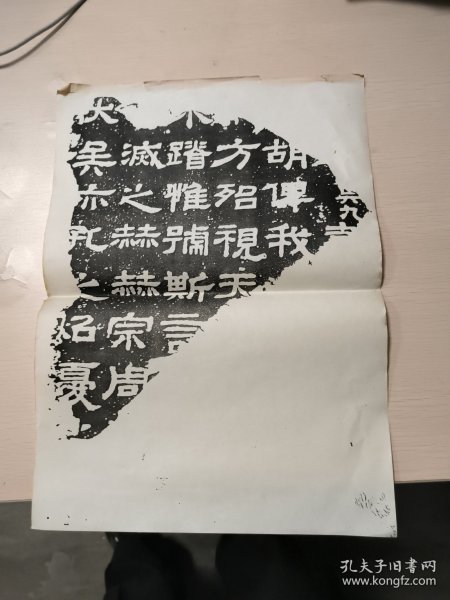 胡俾我
方殆視天
不蹐惟號斯言
滅之赫赫宗周
伏矣亦孔之炤憂
孔夫子旧书网
www.kongfz.com